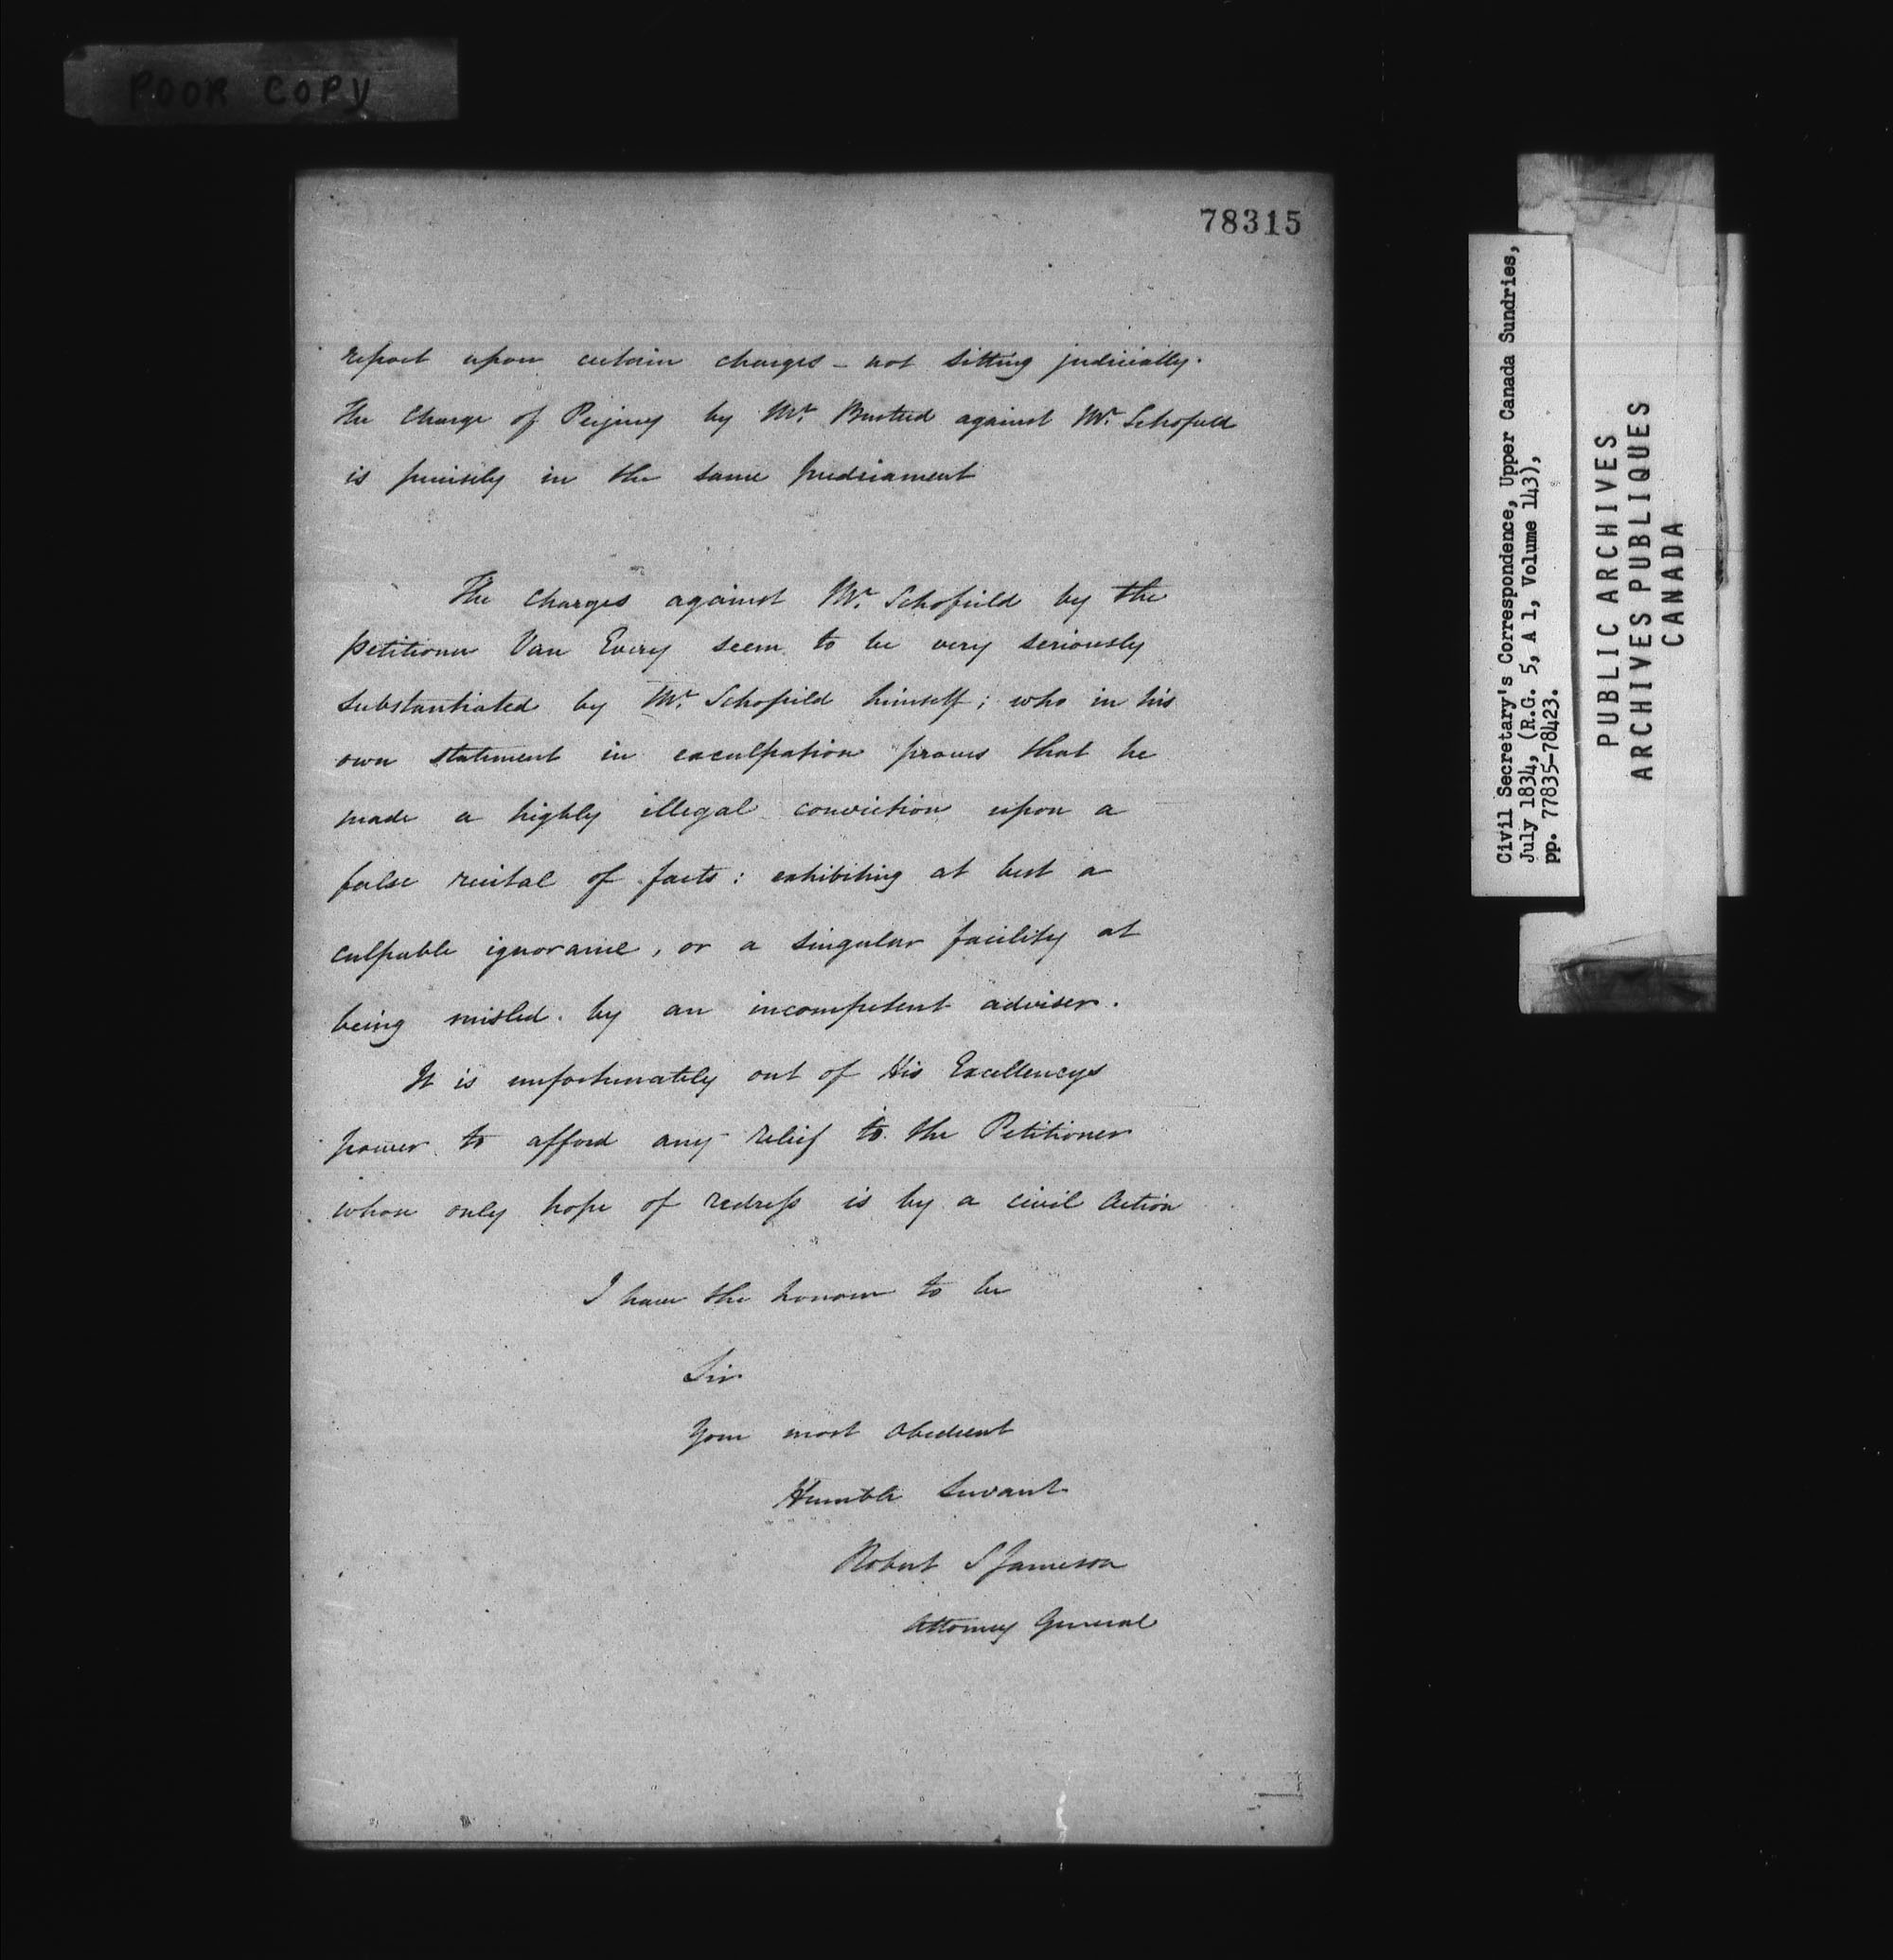 POOR COPY
78315
report upon certain charges - not sitting judicially.
The Charge of Perjury by Mr. Busteed against Mr. Schofield
is precisely in the same predicament
The Charges against Mr. Schofield by the
petitioner Van Every seem to be very seriously
substantiated by Mr. Schofield himself; who in his
own statement in exculpation proves that he
made a highly illegal conviction upon a
false recital of facts: exhibiting at best a
culpable ignorance, or a singular facility at
being misled by an incompetent adviser.
It is unfortunately out of His Excellencys
power to afford any relief to the Petitioner
whose only hope of redress is by a civil Action
I have the honour to be
Sir
Your most obedient
Humble Servant
Robert S Jameson
Attorney General
Civil Secretary's Correspondence, Upper Canada Sundries,
July 1834, (R.G. 5, A 1, Volume 143),
pp. 77835-78423.
PUBLIC ARCHIVES
ARCHIVES PUBLIQUES
CANADA